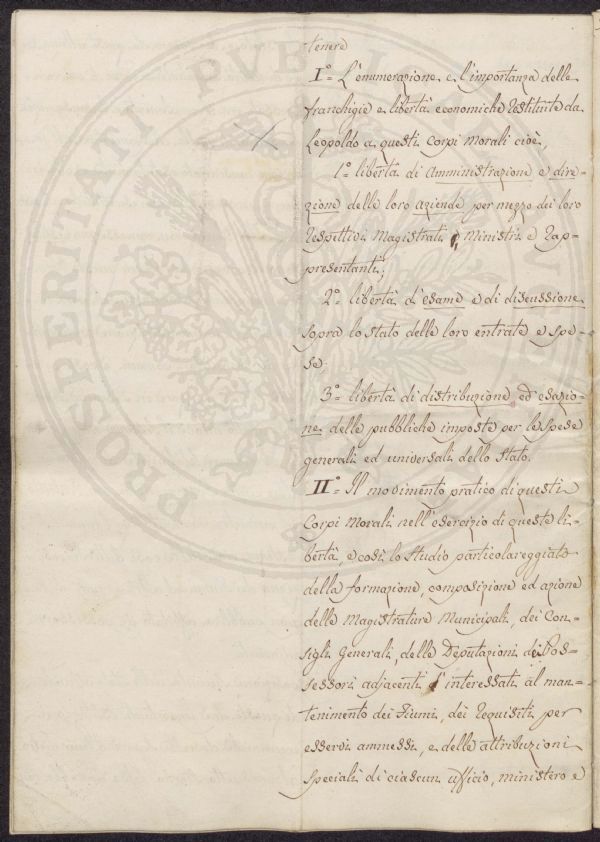 tenere
I.° = L'enumerazione e l'importanza delle
franchigie e libertà economiche restituite da
Leopoldo a questi Corpi Morali cioè,
1.° libertà di Amministrazione e dire=
zione delle loro aziende per mezzo dei loro
respettivi Magistrati, Ministri e Rap=
presentanti;
2.° libertà d'esame e di discussione
sopra lo stato delle loro entrate e spe=
se,
3.° libertà di distribuzione ed esazio=
ne delle pubbliche imposte per le spese
generali ed universali dello Stato.
II.° = Il movimento pratico di questi
Corpi Morali nell'esercizio di queste li=
bertà, e così lo Studio particolareggiato
della formazione, composizione ed azione
delle Magistrature Municipali, dei Con=
sigli Generali, delle Deputazioni dei Pos=
sessori adjacenti d'interessati al man=
tenimento dei Fiumi, dei Requisiti per
esservi ammessi, e delle attribuzioni
speciali di ciascun ufficio, ministero e
PROSPERITATI